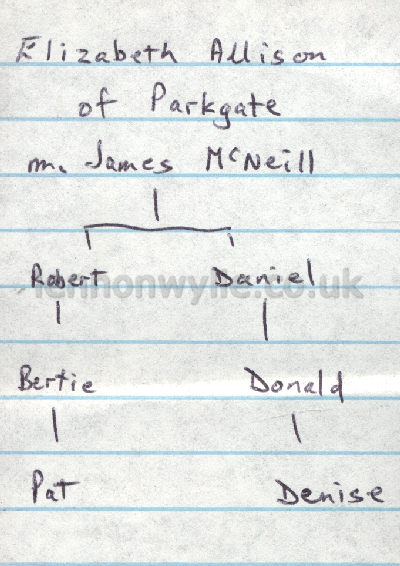 Elizabeth Allison
of Parkgate
m. James McNeill
Robert Daniel
lennonwylie.co.uk
Bertie Donald
Pat Denise